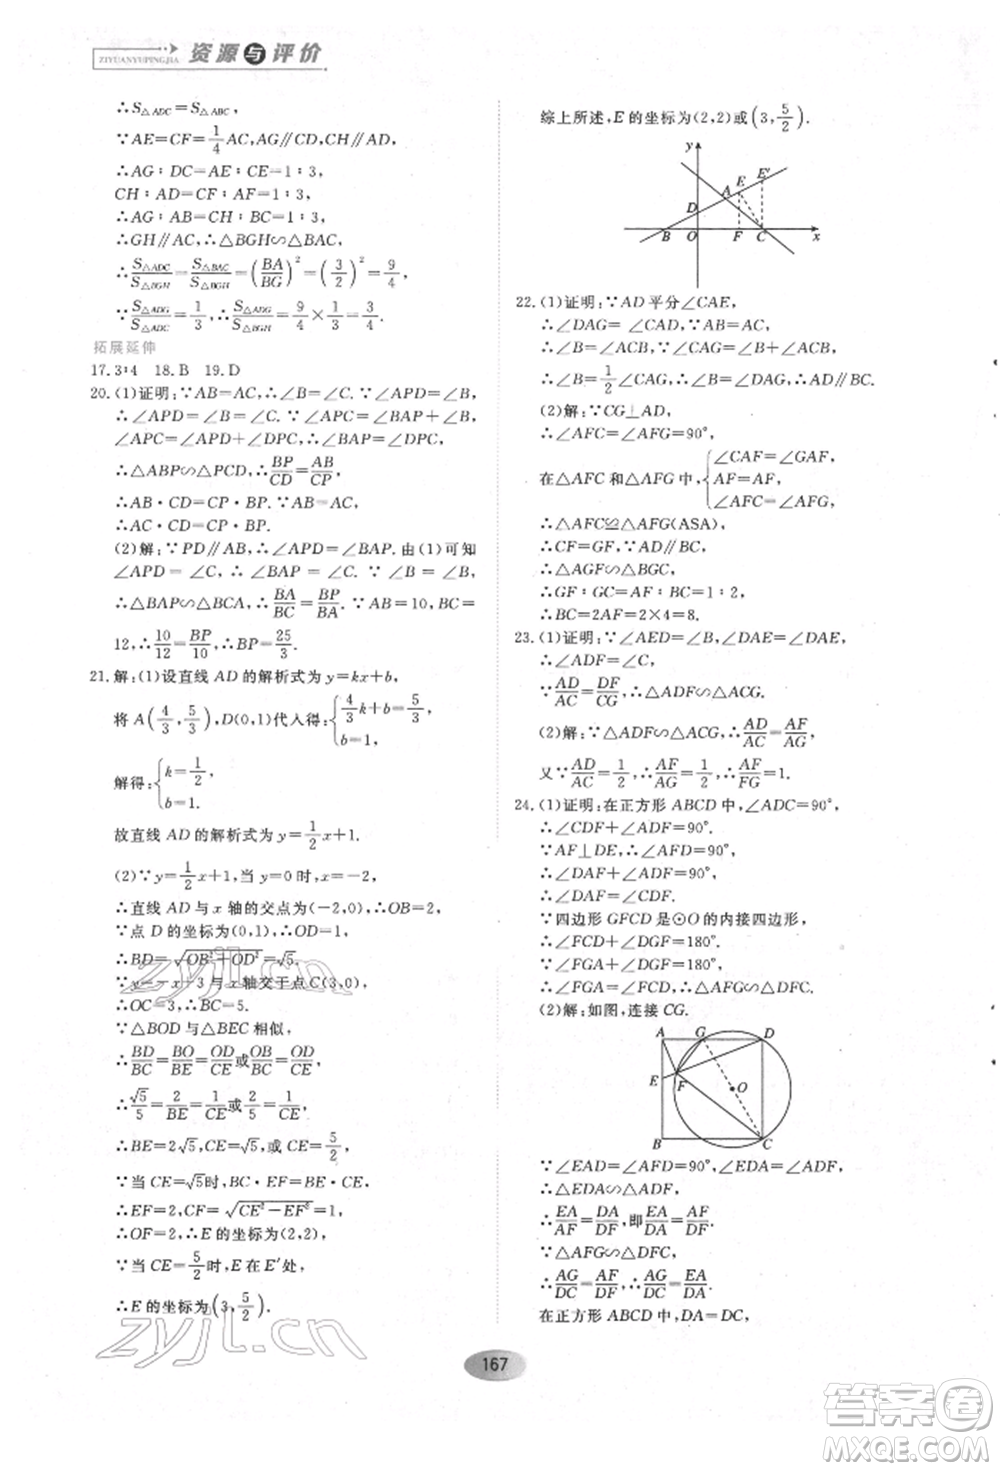 ZIYUANYUPINGJIA 资源与评价
∴S△ADC=S△ABC,
∵AE=CF=1/4AC,AG∥CD,CH∥AD,
∴AG∶DC=AE∶CE=1∶3,
CH∶AD=CF∶AF=1∶3,
∴AG∶AB=CH∶BC=1∶3,
∴GH∥AC,∴△BGH∽△BAC,
∴S△ADC/S△BGH=S△BAC/S△BGH=(BA/BG)²=(3/2)²=9/4,
∵S△ADG/S△ADC=1/3,∴S△ADG/S△BGH=9/4×1/3=3/4.
拓展延伸
17.3∶4 18.B 19.D
20.(1)证明:∵AB=AC,∴∠B=∠C.∵∠APD=∠B,
∴∠APD=∠B=∠C.∵∠APC=∠BAP+∠B,
∠APC=∠APD+∠DPC,∴∠BAP=∠DPC,
∴△ABP∽△PCD,∴BP/CD=AB/CP,
∴AB·CD=CP·BP.∵AB=AC,
∴AC·CD=CP·BP.
(2)解:∵PD∥AB,∴∠APD=∠BAP.由(1)可知
∠APD=∠C,∴∠BAP=∠C.∵∠B=∠B,
∴△BAP∽△BCA,∴BA/BC=BP/BA.∵AB=10,BC=
12,∴10/12=BP/10,∴BP=25/3.
21.解:(1)设直线AD的解析式为y=kx+b,
将A(4/3,5/3),D(0,1)代入得:{4/3k+b=5/3, b=1,
解得:{k=1/2, b=1,
故直线AD的解析式为y=1/2x+1.
(2)∵y=1/2x+1,当y=0时,x=-2,
∴直线AD与x轴的交点为(-2,0),∴OB=2,
∵点D的坐标为(0,1),∴OD=1,
∴BD=√(OB²+OD²)=√5.
∵y=-x+3与x轴交于点C(3,0),
∴OC=3,∴BC=5.
∵△BOD与△BEC相似,
∴BD/BC=BO/BE=OD/CE或OB/BC=OD/CE,
∴√5/5=2/BE=1/CE或2/5=1/CE,
∴BE=2√5,CE=√5,或CE=5/2,
∵当CE=√5时,BC·EF=BE·CE,
∴EF=2,CF=√(CE²-EF²)=1,
∴OF=2,∴E的坐标为(2,2);
∵当CE=5/2时,E在E′处,
∴E的坐标为(3,5/2).
综上所述,E的坐标为(2,2)或(3,5/2).
y
E′
A E
D
B O F C x
22.(1)证明:∵AD平分∠CAE,
∴∠DAG=∠CAD=1/2∠CAE,
∴∠B=∠ACB=1/2∠CAE,
∴∠B=1/2∠CAE=∠DAG,∴AD∥BC.
(2)解:∵CG⊥AD,
∴∠AFC=∠AFG=90°,
在△AFC和△AFG中,{∠CAF=∠GAF, AF=AF, ∠AFC=∠AFG,
∴△AFC≌△AFG(ASA),
∴CF=GF,∵AD∥BC,
∴△AGF∽△BGC,
∴GF∶GC=AF∶BC=1∶2,
∴BC=2AF=2×4=8.
23.(1)证明:∵∠AED=∠B,∠DAE=∠DAE,
∴∠ADF=∠C,
∵AD/AC=DF/CG,∴△ADF∽△ACG.
(2)解:∵△ADF∽△ACG,∴AD/AC=AF/AG,
又∵AD/AC=1/2,∴AF/AG=1/2,∴AF/FG=1.
24.(1)证明:在正方形ABCD中,∠ADC=90°,
∴∠CDF+∠ADF=90°.
∵AF⊥DE,∴∠AFD=90°,
∴∠DAF+∠ADF=90°,
∴∠DAF=∠CDF.
∵四边形GFCD是⊙O的内接四边形,
∴∠FCD+∠DGF=180°.
∵∠FGA+∠DGF=180°,
∴∠FGA=∠FCD,∴△AFG∽△DFC.
(2)解:如图,连接CG.
A G D
E F O
B C
∵∠EAD=∠AFD=90°,∠EDA=∠ADF,
∴△EDA∽△ADF,
∴EA/AF=DA/DF,即EA/DA=AF/DF.
∵△AFG∽△DFC,
∴AG/DC=AF/DF,∴AG/DC=EA/DA.
在正方形ABCD中,DA=DC,
167
zyjl.cn
zyjl.cn
答案圈
MXQE.COM